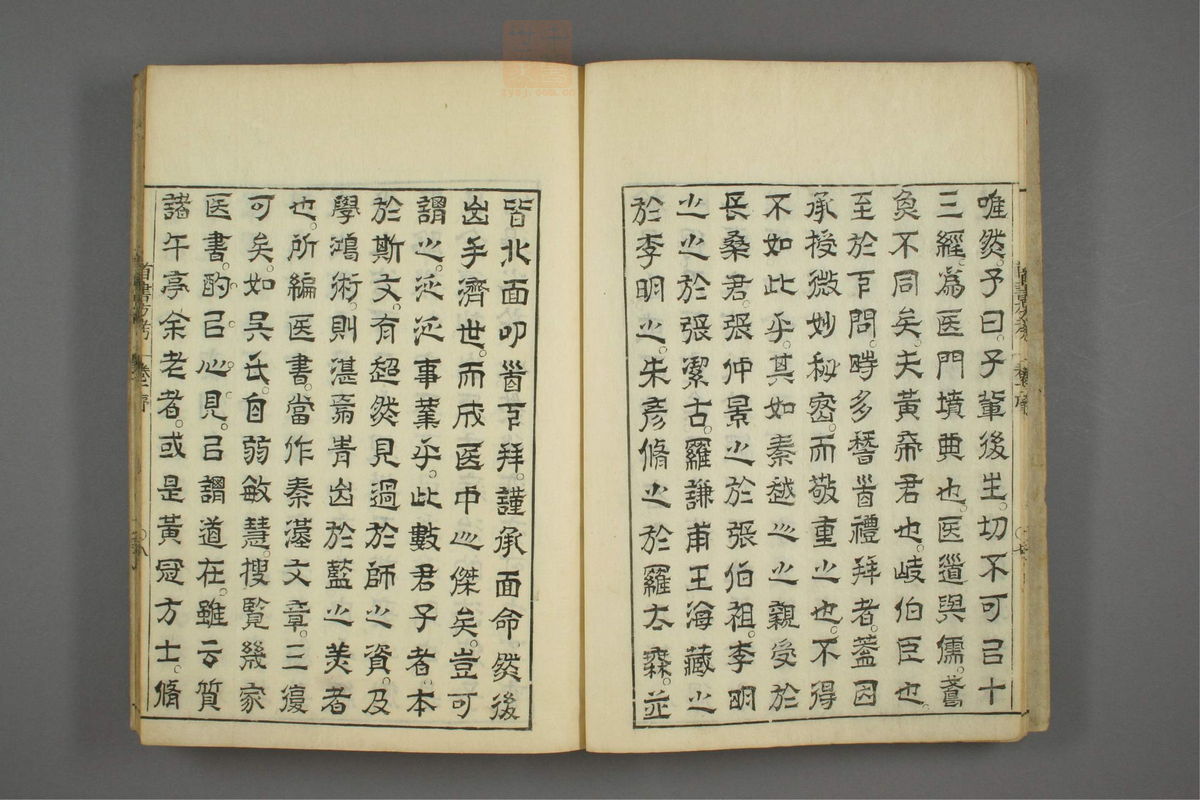 唯然。予曰。子輩後生。切不可㠯十
三經。爲医門墳典也。医道與儒。蒼
奐不同矣。夫黃帝君也。岐伯臣也。
至於下問。時多稽首禮拜者。蓋因
承授微妙秘密。而敬重之也。不得
不如此乎。其如秦越人之親受於
長桑君。張仲景之於張伯祖。李明
之之於張潔古。羅謙甫王海藏之
於李明之。朱彥脩之於羅太無。並
皆北面叩首下拜。謹承面命。然後
出手濟世。而成医中之傑矣。豈可
謂之泛泛事業乎。此數君子者。本
於斯文。有超然見過於師之資。及
學鴻術。則湛爲青出於藍之美者
也。所編医書。當作秦漢文章三復
可矣。如吳氏。自弱敏慧。搜覽幾家
医書。酌㠯心見。㠯謂道在。雖云質
諸午亭余老者。或是黃冠方士。脩
首書方考
卷一序
八